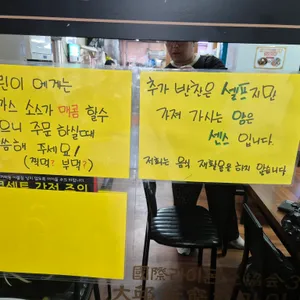 린이 에게는
가스 소스가 매콤 할수
으니 주문 하실때
씀해 주세요!
(찍먹? 부먹?)
추가 반찬은 셀프지만
가져 가시는 양은
센스 입니다.
저희는 음식 재활용을 하지 않습니다